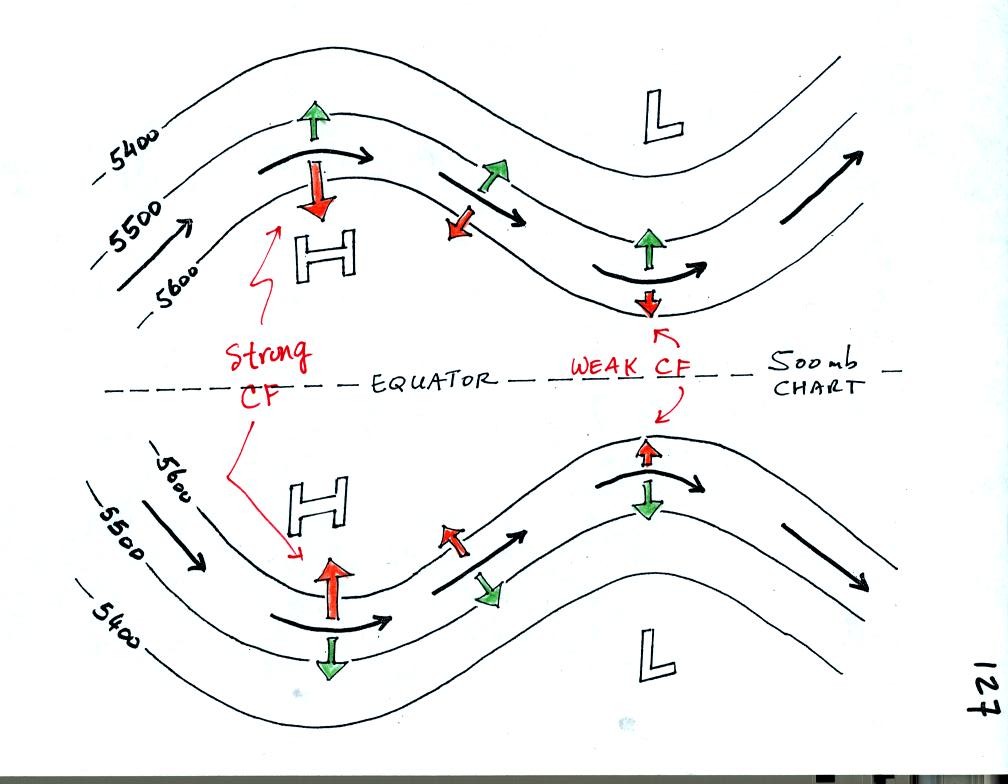 L
5400
5500
H
5600
Strong
CF
WEAK CF
EQUATOR
500mb
CHART
5600
H
5500
5400
L
127